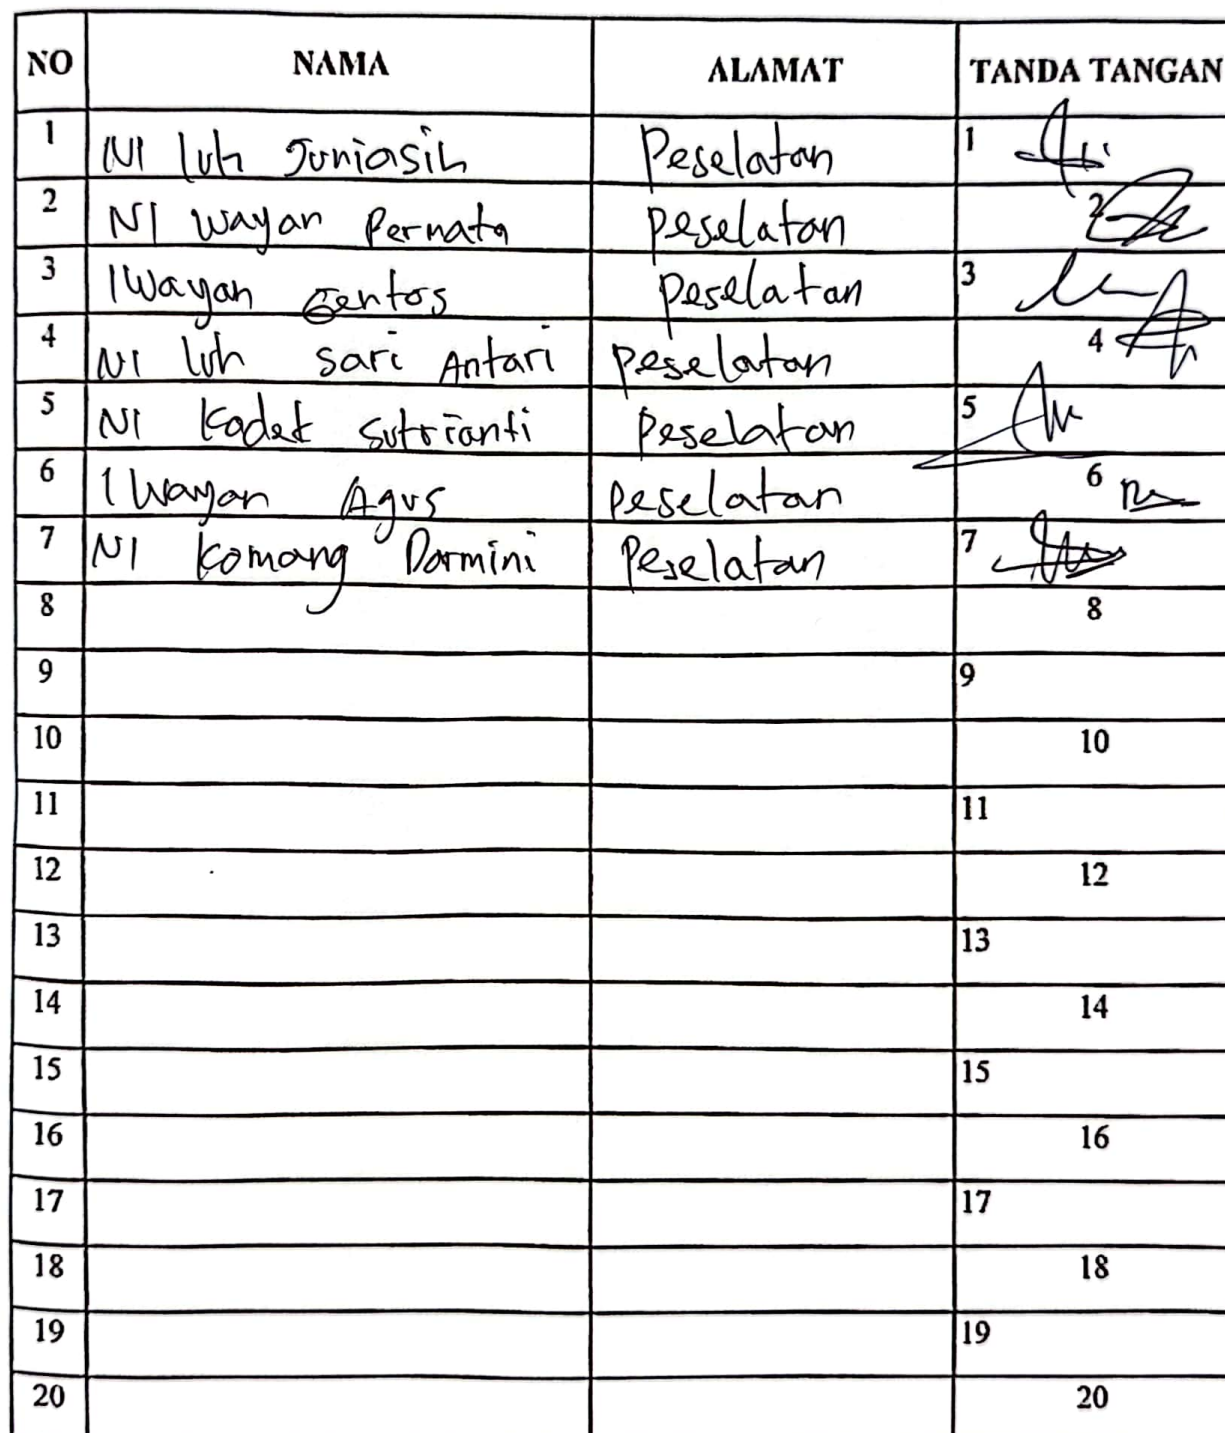 NO NAMA ALAMAT TANDA TANGAN
1 NI luh Juniasih Peselatan 1
2 NI wayan Pernata peselatan 2
3 I Wayan Gentos peselatan 3
4 NI luh sari Antari peselatan 4
5 NI Kadek sutrianti Peselatan 5
6 I Wayan Agus peselatan 6
7 NI Komang Darmini Peselatan 7
8 8
9 9
10 10
11 11
12 12
13 13
14 14
15 15
16 16
17 17
18 18
19 19
20 20